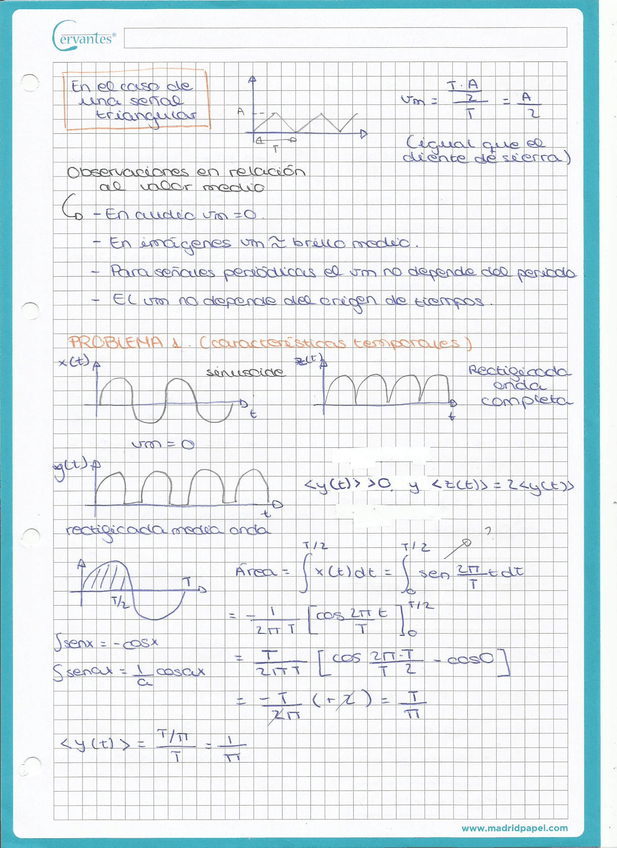 Cervantes®
En el caso de
una señal
triangular
A
T
vm = (T·A/2)/T = A/2
(igual que el
diente de sierra)
Observaciones en relación
al valor medio
- En audio vm = 0.
- En imágenes vm ≈ brillo medio.
- Para señales periódicas el vm no depende del periodo
- El vm no depende del origen de tiempos.
PROBLEMA 1. (características temporales)
x(t)
sinusoide
t
vm = 0
z(t)
t
Rectificada
onda
completa
y(t)
t
<y(t)> >0. y <z(t)> = 2<y(t)>
rectificada media onda
A
T/2
T
Área = ∫ T/2 x(t)dt = ∫ T/2 0 sen 2π/T t dt
?
= - 1/2πT [cos 2π t/T] T/2 0
∫senx = -cosx
∫senax = 1/a cosax
= T/2πT [cos 2π·T/T 2 - cos0]
= -T/2π (+2) = T/π
<y(t)> = T/π/T = 1/π
www.madridpapel.com